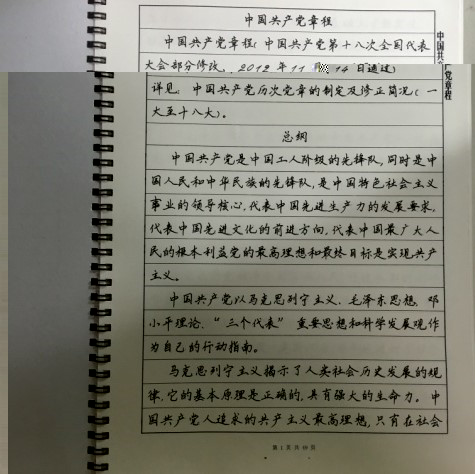 中国共产党章程
中国共产党章程：中国共产党第十八次全国代表
大会部分修改，2012年11月14日通过
详见：中国共产党历次党章的制定及修正简况（一
大至十八大）。
总纲
中国共产党是中国工人阶级的先锋队，同时是中
国人民和中华民族的先锋队，是中国特色社会主义
事业的领导核心，代表中国先进生产力的发展要求，
代表中国先进文化的前进方向，代表中国最广大人
民的根本利益党的最高理想和最终目标是实现共产
主义。
中国共产党以马克思列宁主义、毛泽东思想、邓
小平理论、“三个代表”重要思想和科学发展观作
为自己的行动指南。
马克思列宁主义揭示了人类社会历史发展的规
律，它的基本原理是正确的，具有强大的生命力。中
国共产党人追求的共产主义最高理想，只有在社会
第1页共69页
中国共
产党章程